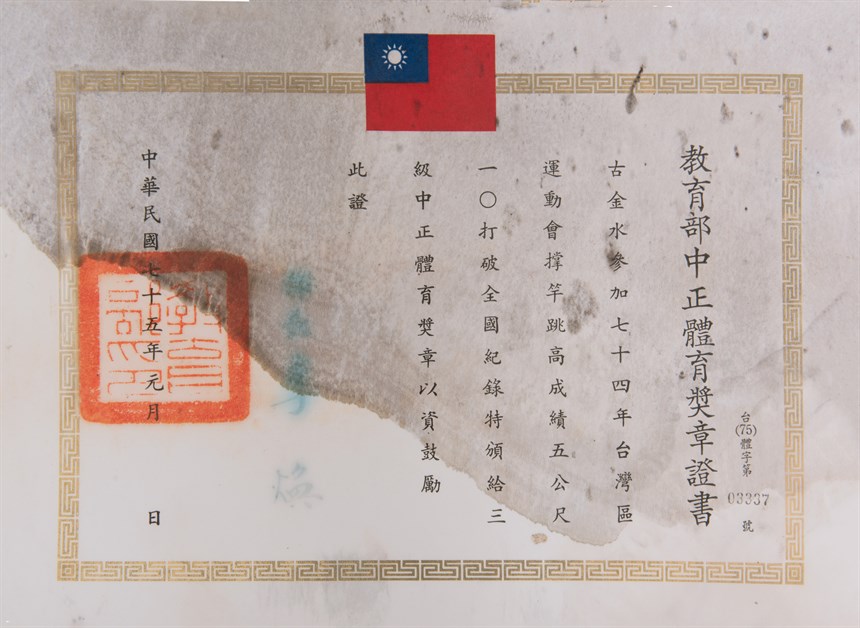 教育部中正體育獎章證書
台(75)體字第03337號
古金水參加七十四年台灣區
運動會撑竿跳高成績五公尺
一〇打破全國紀錄特頒給三
級中正體育獎章以資鼓勵
此證
中華民國七十五年元月 日